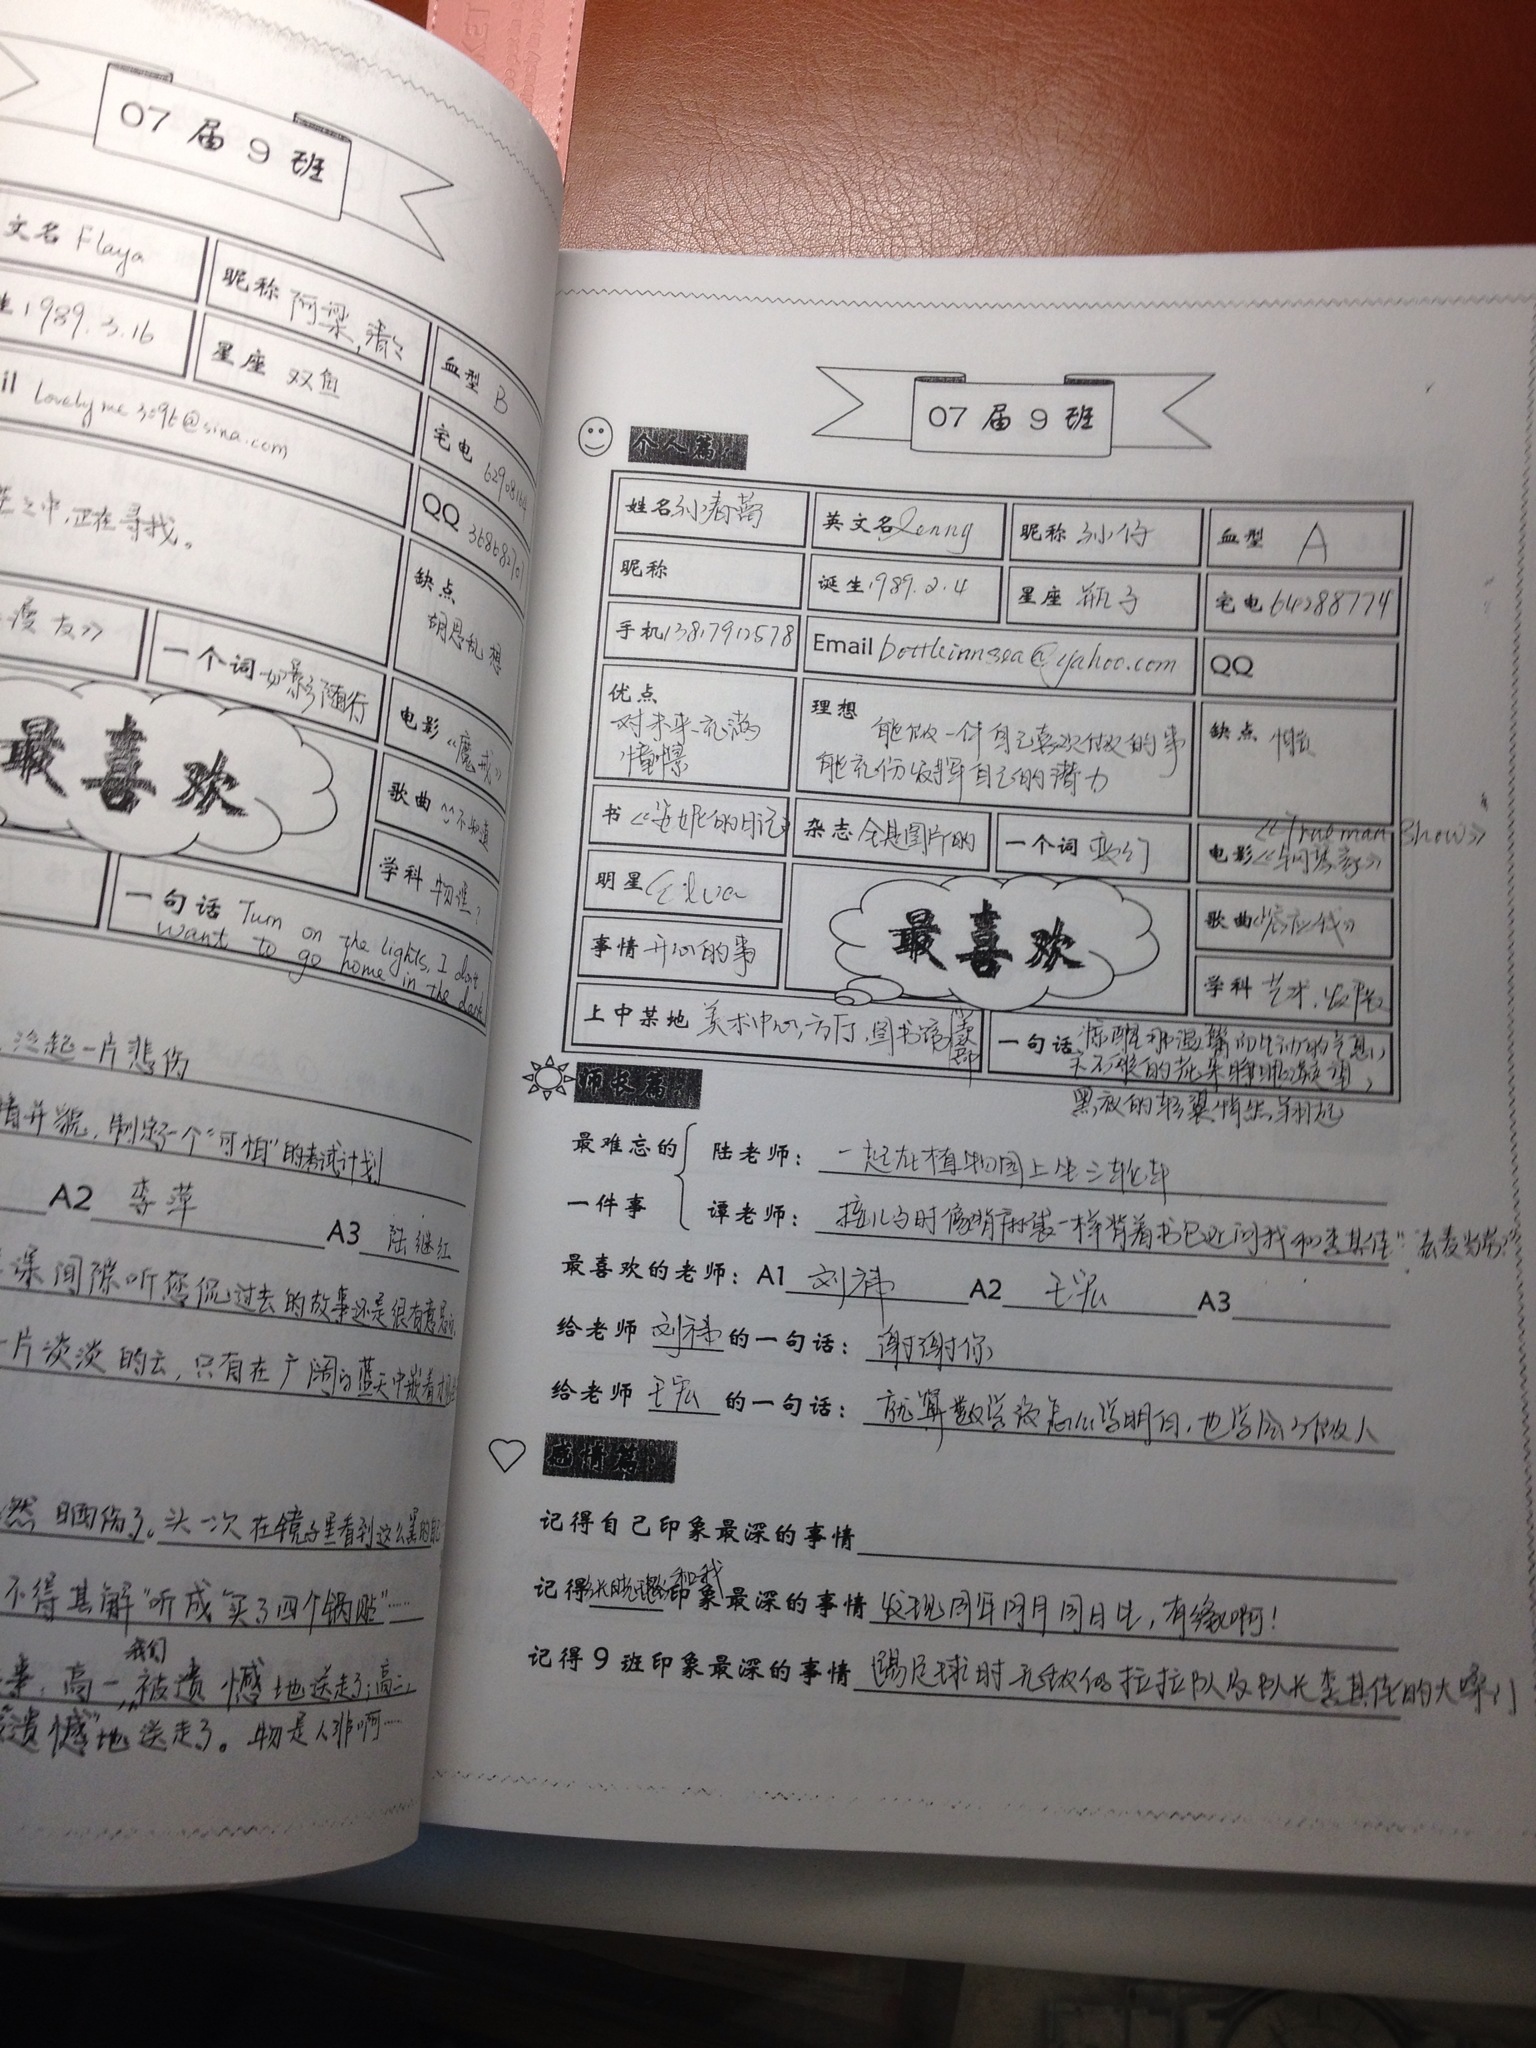 07届9班
文名 Flaya
昵称 阿梁,
血型 B
生 1989.3.16
星座 双鱼
宅电 62908164
il lovelyme309t@sina.com
QQ 36868270
之中,正在寻找。
缺点
胡思乱想
一个词 如影随行
电影《魔戒》
最喜欢
歌曲 不知道
学科 物理?
一句话 Turn on the lights, I don't
want to go home in the dark
泛起一片悲伤
制定了一个"可怕"的考试计划
A2 李萍
A3 陆继红
课间隙听您侃过去的故事还是很有意思
一片淡淡的云,只有在广阔的蓝天中嵌着才
然晒伤了。头一次在镜子里看到这么黑的自己
不得其解"听成"买了四个锅贴"……
我们
高一,被遗憾地送走了;高二,
遗憾"地送走了。物是人非啊……
07届9班
个人篇
姓名 孙春蕾
英文名 Jenny
昵称 孙仔
血型 A
昵称
诞生 1989.2.4
星座 瓶子
宅电 64288774
手机 13817912578
Email bottleinnsea@yahoo.com
QQ
优点
对未来充满
憧憬
理想
能做一件自己喜欢做的事
能充份发挥自己的潜力
缺点 懒
书《安妮的日记》
杂志 全是图片的
一个词
电影《Truman Show》
明星 Elva
最喜欢
歌曲
事情 开心的事
学科 艺术,
上中某地 美术中心,方厅,图书馆
一句话
黑夜的轻翼悄然
师长篇
最难忘的
一件事
陆老师: 一起在植物园上坐三轮车
谭老师: 拉儿马时像背麻袋一样背着书包还问我和李其佳"去麦当劳?"
最喜欢的老师: A1 刘祎 A2 王宏 A3
给老师 刘祎 的一句话: 谢谢你
给老师 王宏 的一句话: 就算数学没怎么学明白,也学会了做人
感情篇
记得自己印象最深的事情
记得张晓璐和我印象最深的事情 发现同年同月同日生,有缘啊!
记得9班印象最深的事情 踢足球时无敌的拉拉队及队长李其佳的大嗓门